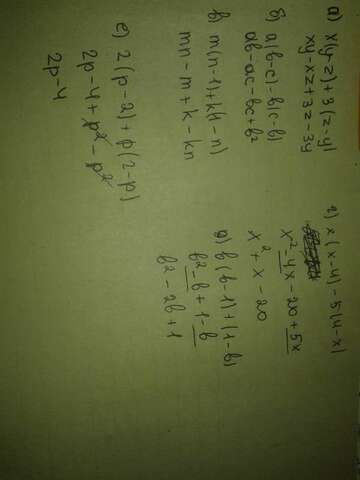 а) x(y-z)+3(z-y)
xy-xz+3z-3y
б) a(b-c)-b(c-b)
ab-ac-bc+b²
в) m(n-1)+k(1-n)
mn-m+k-kn
г) x(x-4)-5(4-x)
x²-4x-20+5x
x²+x-20
д) b(b-1)+(1-b)
b²-b+1-b
b²-2b+1
е) 2(p-2)+p(2-p)
2p-4+p²-p²
2p-4